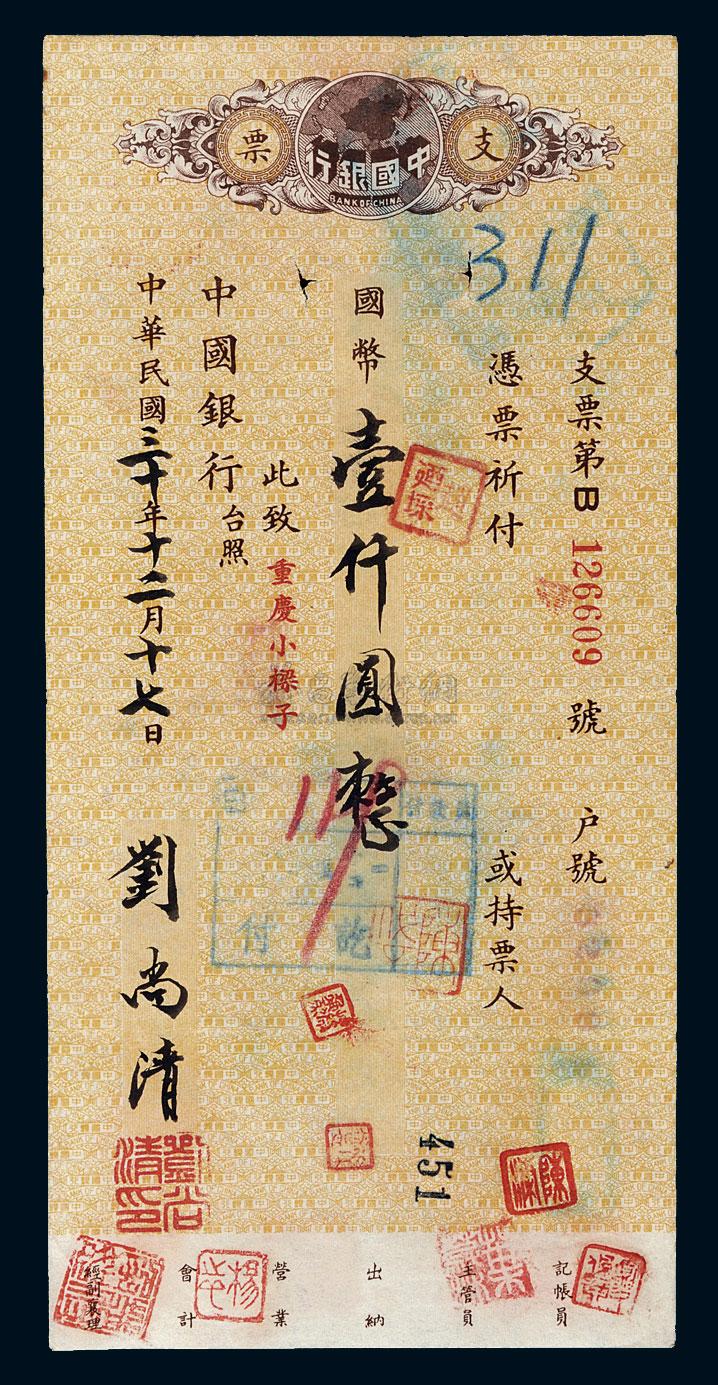 支票
中國銀行
BANK OF CHINA
311
支票第B 126609 號 户號
憑票祈付 或持票人
國幣壹仟圓整
此致
重慶小樑子
中國銀行台照
中華民國三十年十二月十七日
劉尚清
付訖
451
陳
楊
記帳員
主管員
出納
營業
會計
經副襄理